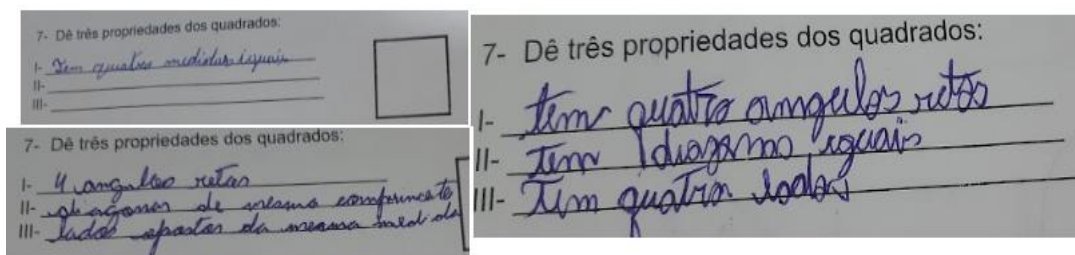 7- Dê três propriedades dos quadrados:
I- Tem quatro medidas iguais
II-
III-
7- Dê três propriedades dos quadrados:
I- 4 angulos retos
II- diagonos de mesmo comprimento
III- lados opostos da mesma medida
7- Dê três propriedades dos quadrados:
I- tem quatro angulos retos
II- Tem diagamo iguais
III- Tem quatro lados